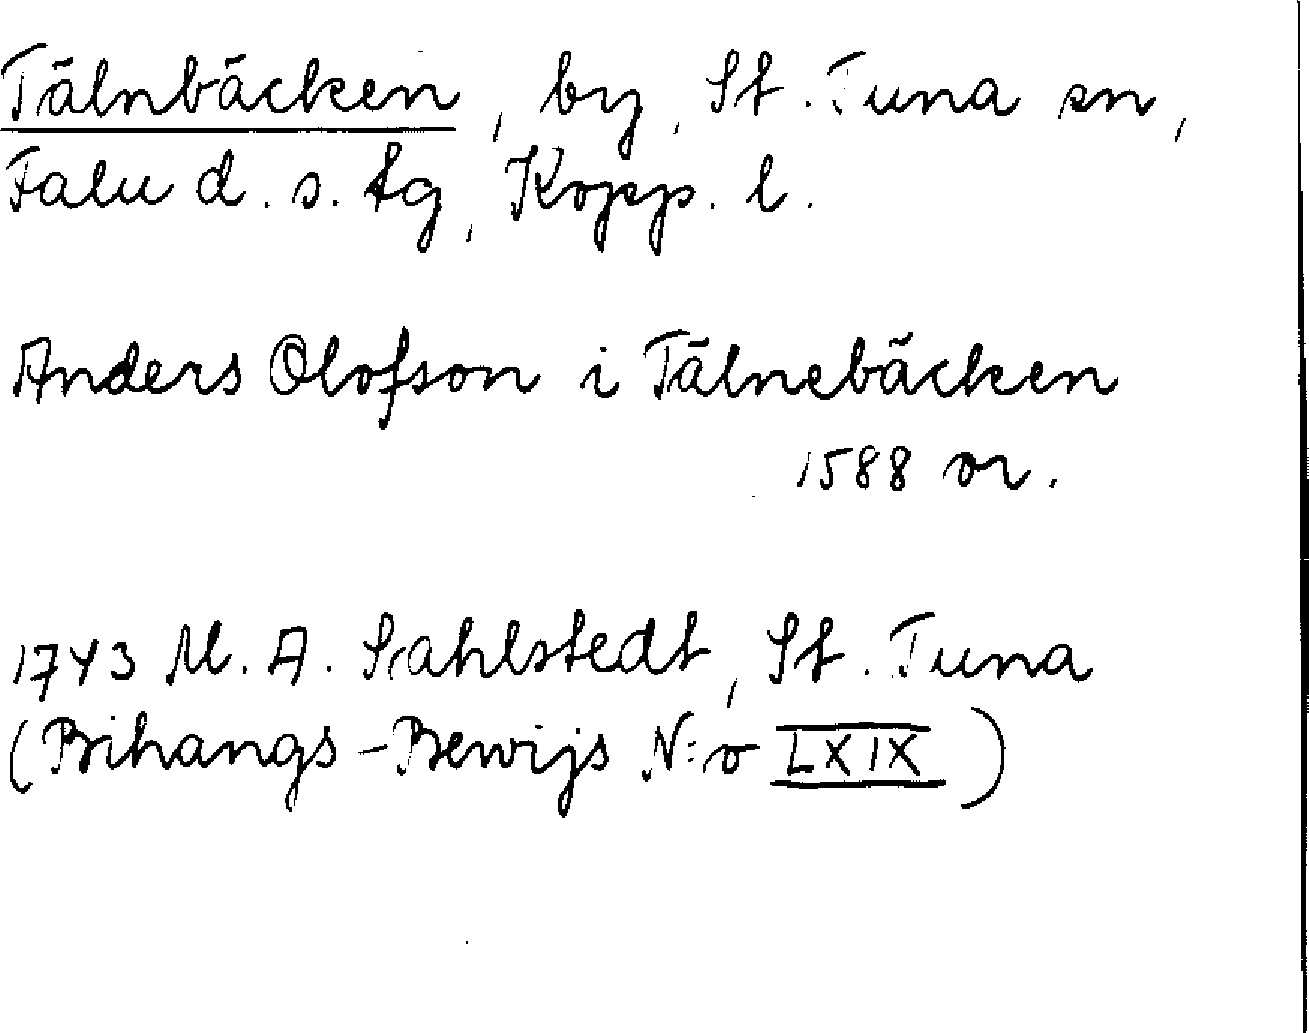 Tälnbäcken, by, St. Tuna sn,
Falu d. s. tg, Kopp. l.
Anders Olofson i Tälnebäcken
1588 or.
1743 M. A. Sahlstedt, St. Tuna
(Bihangs-Bewijs N:o LXIX)